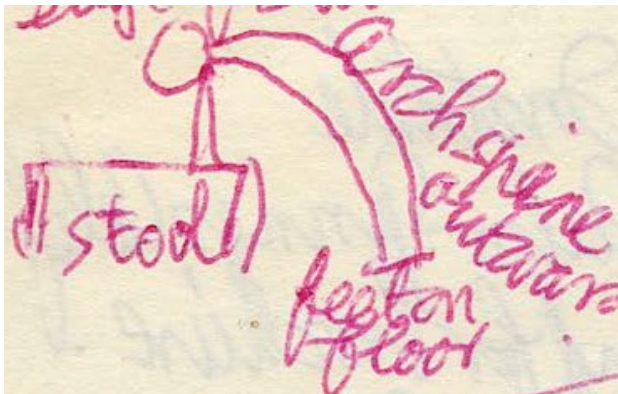 arch spine
outwars
stool
feet on
floor